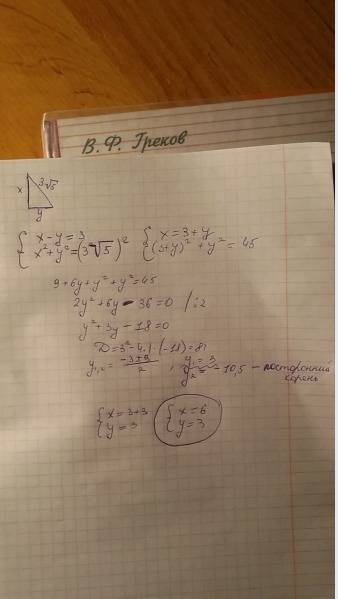 В. Ф. Греков
x 3√5
y
{ x - y = 3
x² + y² = (3√5)²
{ x = 3 + y
(3+y)² + y² = 45
9 + 6y + y² + y² = 45
2y² + 6y - 36 = 0 /:2
y² + 3y - 18 = 0
D = 3² - 4·1·(-18) = 81
y₁,₂ = (-3±9)/2 ; y₁ = 3
y₂ = -10,5 - посторонний
корень
{ x = 3+3
y = 3
{ x = 6
y = 3